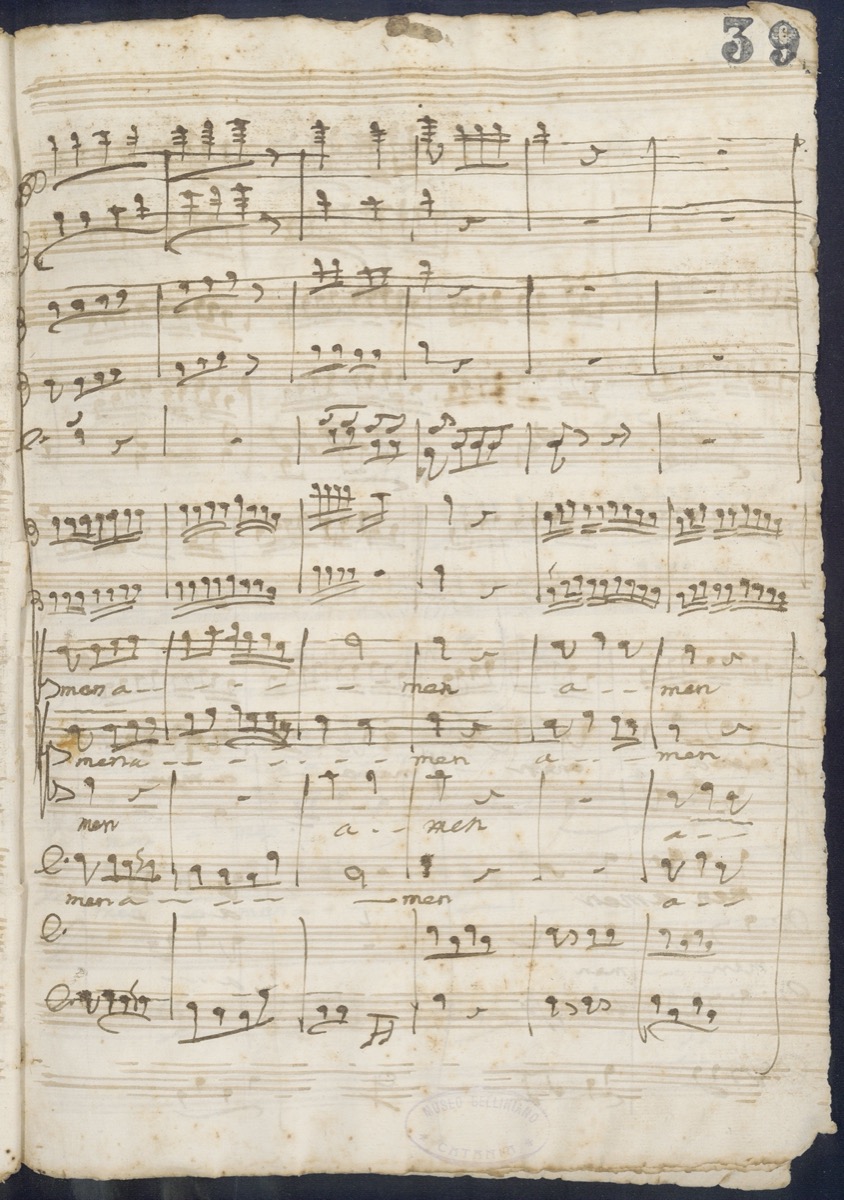 39
men a - - - - - - men a - - men
men a - - - - - - - men a - - - men
men a - - men a - -
men a - - - - - men a - -
MUSEO BELLINIANO
CATANIA